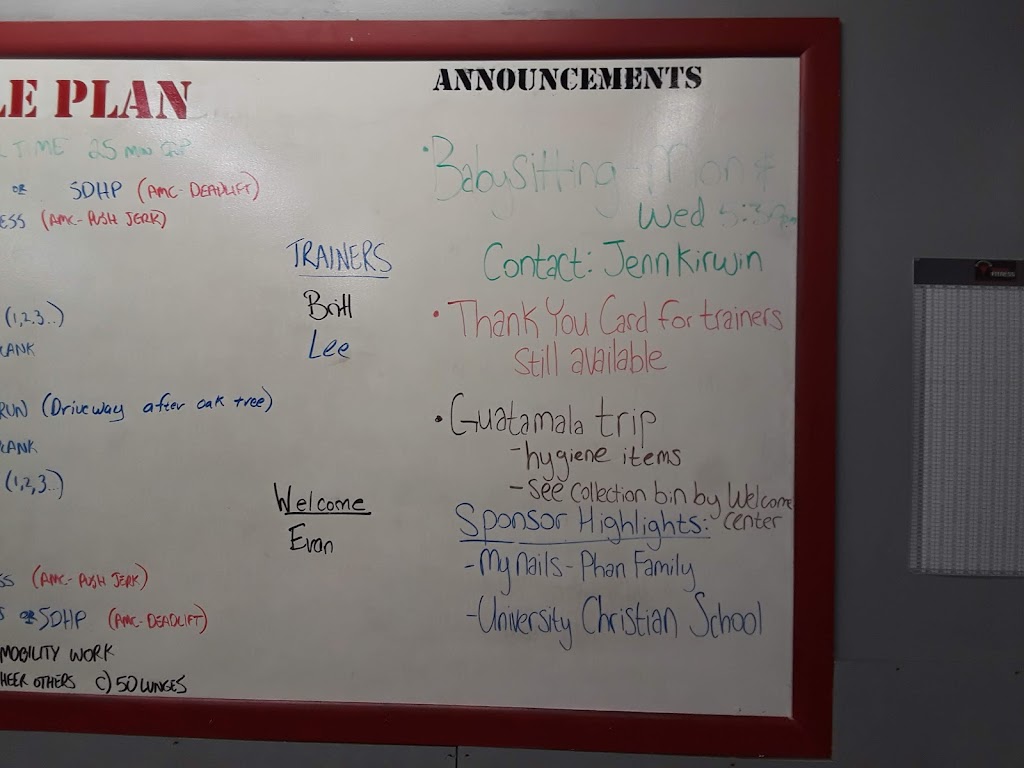 LE PLAN
L TIME 25 MIN CAP
OR SDHP (AMC-DEADLIFT)
ESS (AMC-PUSH JERK)
(1,2,3..)
LANK
RUN (Driveway after oak tree)
LANK
(1,2,3..)
SS (AMC-PUSH JERK)
S OR SDHP (AMC-DEADLIFT)
MOBILITY WORK
HEER OTHERS C) 50 LUNGES
TRAINERS
Britt
Lee
Welcome
Evan
ANNOUNCEMENTS
• Babysitting - Mon &
Wed 5:30pm
Contact: Jenn Kirwin
• Thank You Card for trainers
still available
• Guatamala trip
- hygiene items
- See collection bin by Welcome
center
Sponsor Highlights:
- My nails - Phan Family
- University Christian School
FITNESS